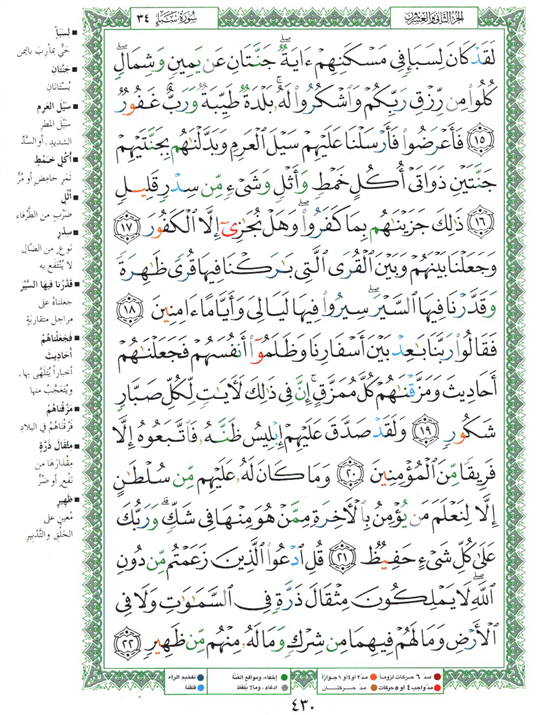 الجزء الثاني والعشرون
سورة سبأ ٣٤
لَقَدْ كَانَ لِسَبَإٍ فِى مَسْكَنِهِمْ ءَايَةٌ ۖ جَنَّتَانِ عَن يَمِينٍ وَشِمَالٍ ۖ
كُلُوا۟ مِن رِّزْقِ رَبِّكُمْ وَٱشْكُرُوا۟ لَهُۥ ۚ بَلْدَةٌ طَيِّبَةٌ وَرَبٌّ غَفُورٌ
١٥ فَأَعْرَضُوا۟ فَأَرْسَلْنَا عَلَيْهِمْ سَيْلَ ٱلْعَرِمِ وَبَدَّلْنَٰهُم بِجَنَّتَيْهِمْ
جَنَّتَيْنِ ذَوَاتَىْ أُكُلٍ خَمْطٍ وَأَثْلٍ وَشَىْءٍ مِّن سِدْرٍ قَلِيلٍ
١٦ ذَٰلِكَ جَزَيْنَٰهُم بِمَا كَفَرُوا۟ ۖ وَهَلْ نُجَٰزِىٓ إِلَّا ٱلْكَفُورَ ١٧
وَجَعَلْنَا بَيْنَهُمْ وَبَيْنَ ٱلْقُرَى ٱلَّتِى بَٰرَكْنَا فِيهَا قُرًى ظَٰهِرَةً
وَقَدَّرْنَا فِيهَا ٱلسَّيْرَ ۖ سِيرُوا۟ فِيهَا لَيَالِىَ وَأَيَّامًا ءَامِنِينَ ١٨
فَقَالُوا۟ رَبَّنَا بَٰعِدْ بَيْنَ أَسْفَارِنَا وَظَلَمُوٓا۟ أَنفُسَهُمْ فَجَعَلْنَٰهُمْ
أَحَادِيثَ وَمَزَّقْنَٰهُمْ كُلَّ مُمَزَّقٍ ۚ إِنَّ فِى ذَٰلِكَ لَءَايَٰتٍ لِّكُلِّ صَبَّارٍ
شَكُورٍ ١٩ وَلَقَدْ صَدَّقَ عَلَيْهِمْ إِبْلِيسُ ظَنَّهُۥ فَٱتَّبَعُوهُ إِلَّا
فَرِيقًا مِّنَ ٱلْمُؤْمِنِينَ ٢٠ وَمَا كَانَ لَهُۥ عَلَيْهِم مِّن سُلْطَٰنٍ
إِلَّا لِنَعْلَمَ مَن يُؤْمِنُ بِٱلْءَاخِرَةِ مِمَّنْ هُوَ مِنْهَا فِى شَكٍّ ۗ وَرَبُّكَ
عَلَىٰ كُلِّ شَىْءٍ حَفِيظٌ ٢١ قُلِ ٱدْعُوا۟ ٱلَّذِينَ زَعَمْتُم مِّن دُونِ
ٱللَّهِ ۖ لَا يَمْلِكُونَ مِثْقَالَ ذَرَّةٍ فِى ٱلسَّمَٰوَٰتِ وَلَا فِى
ٱلْأَرْضِ وَمَا لَهُمْ فِيهِمَا مِن شِرْكٍ وَمَا لَهُۥ مِنْهُم مِّن ظَهِيرٍ ٢٢
لسبإ
حيّ بمأرب باليمن
جنتان
بُستانان
سيل العرم
سيل المطر
الشديد. أو السدّ
أُكُل خمط
ثمر حامض أو مرّ
أثل
ضرب من الطرفاء
سدر
نوع من الضّال
لا يُنتفع به
قدّرنا فيها السّير
جعلناه على
مراحل متقاربة
فجعلناهم
أحاديث
أخباراً يُتلهّى بها،
ويُتعجّب منها
مزّقناهم
فرّقناهم في البلاد
مثقال ذرّة
مقدارها من
نفع أو ضرّ
ظهير
مُعين على
الخلق والتدبير
مدّ ٦ حركات لزوماً مدّ ٢ أو ٤ أو ٦ جوازاً
مدّ واجب ٤ أو ٥ حركات مدّ حركتان
إخفاء، ومواقع الغنّة
ادغام، وما لا يُلفظ
تفخيم الراء
قلقلة
٤٣٠